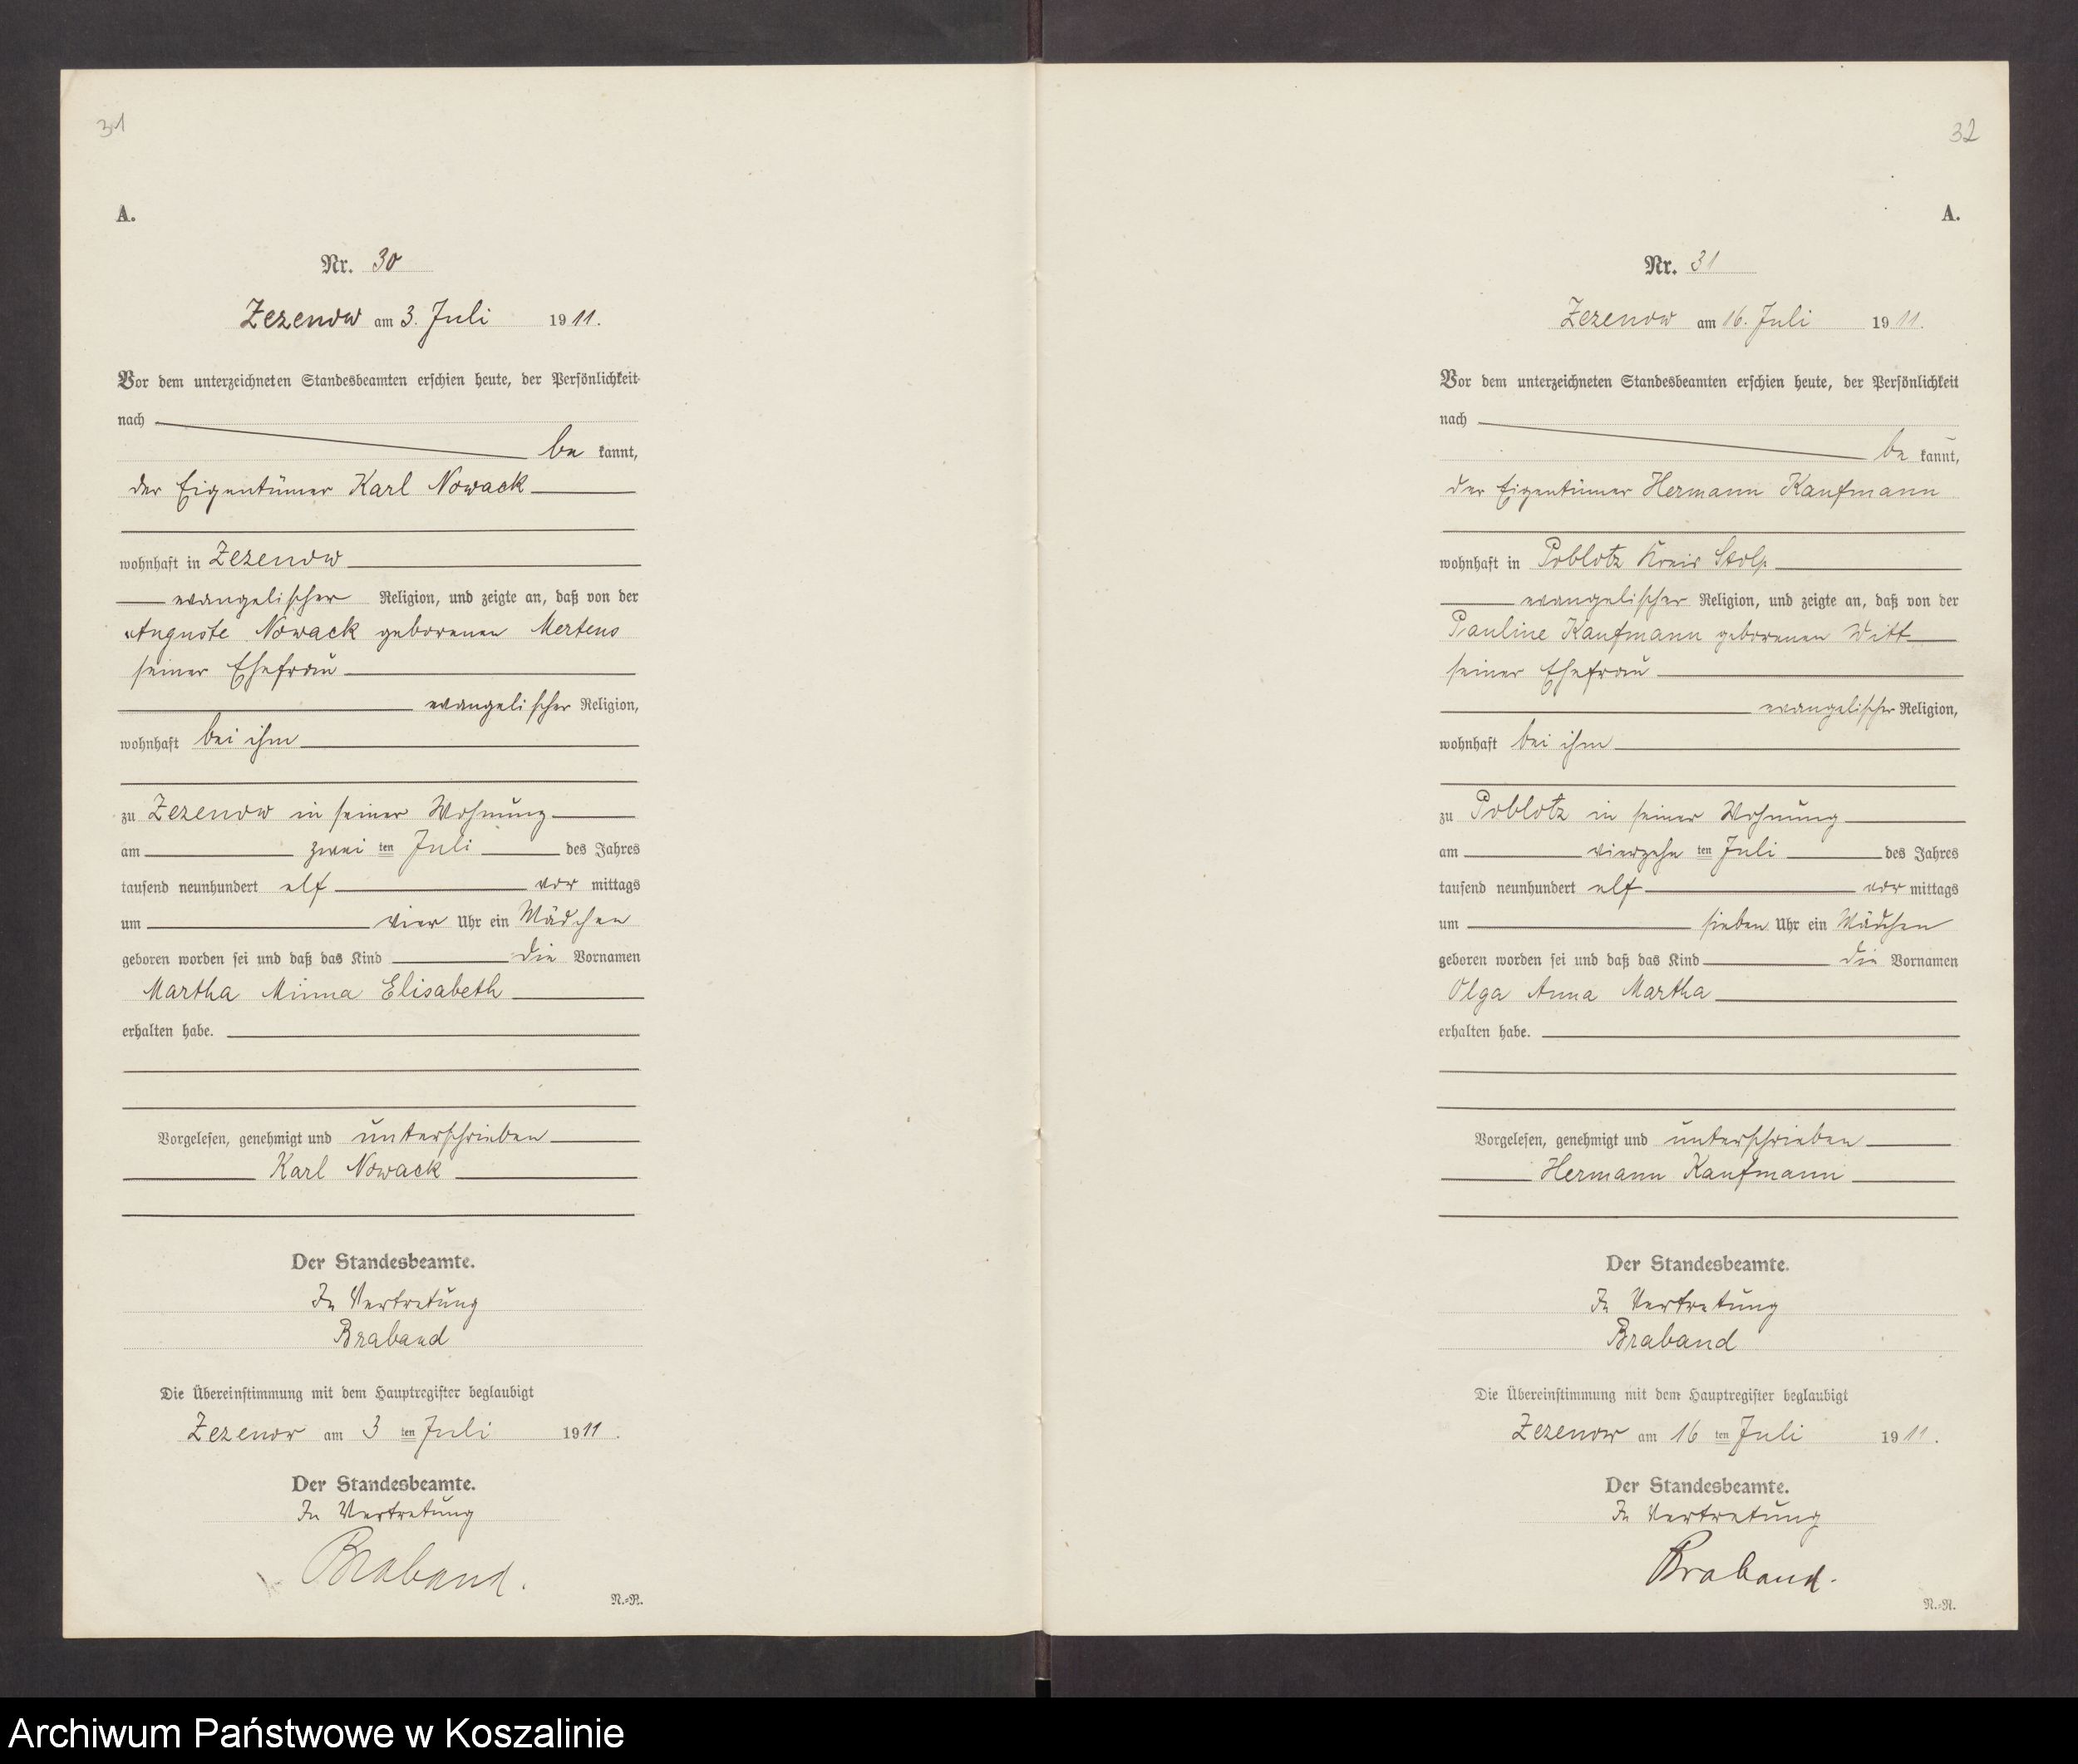 31
A.
Nr. 30
Zezenow am 3. Juli 1911.
Vor dem unterzeichneten Standesbeamten erschien heute, der Persönlichkeit
nach
be kannt,
der Eigentümer Karl Nowack
wohnhaft in Zezenow
evangelischer Religion, und zeigte an, daß von der
Auguste Nowack geborenen Mertens
seiner Ehefrau
evangelischer Religion,
wohnhaft bei ihm
zu Zezenow in seiner Wohnung
am zwei ten Juli des Jahres
tausend neunhundert elf vor mittags
um vier Uhr ein Mädchen
geboren worden sei und daß das Kind die Vornamen
Martha Minna Elisabeth
erhalten habe.
Vorgelesen, genehmigt und unterschrieben
Karl Nowack
Der Standesbeamte.
In Vertretung
Braband
Die Übereinstimmung mit dem Hauptregister beglaubigt
Zezenow am 3 ten Juli 1911.
Der Standesbeamte.
In Vertretung
Braband.
N.=R.
32
A.
Nr. 31
Zezenow am 16. Juli 1911.
Vor dem unterzeichneten Standesbeamten erschien heute, der Persönlichkeit
nach
be kannt,
der Eigentümer Hermann Kaufmann
wohnhaft in Poblotz Kreis Stolp
evangelischer Religion, und zeigte an, daß von der
Pauline Kaufmann geborenen Witt
seiner Ehefrau
evangelischer Religion,
wohnhaft bei ihm
zu Poblotz in seiner Wohnung
am vierzehn ten Juli des Jahres
tausend neunhundert elf vor mittags
um sieben Uhr ein Mädchen
geboren worden sei und daß das Kind die Vornamen
Olga Anna Martha
erhalten habe.
Vorgelesen, genehmigt und unterschrieben
Hermann Kaufmann
Der Standesbeamte.
In Vertretung
Braband
Die Übereinstimmung mit dem Hauptregister beglaubigt
Zezenow am 16 ten Juli 1911.
Der Standesbeamte.
In Vertretung
Braband.
N.=R.
Archiwum Państwowe w Koszalinie